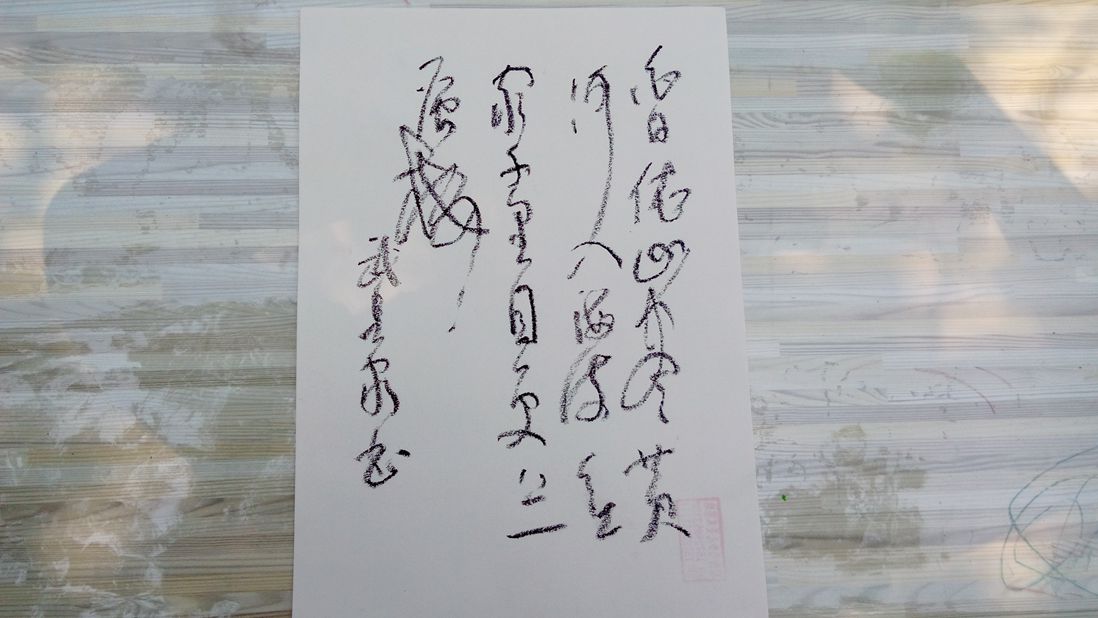 白日依山尽黄
河入海流欲
穷千里目更上一
层楼
武
书